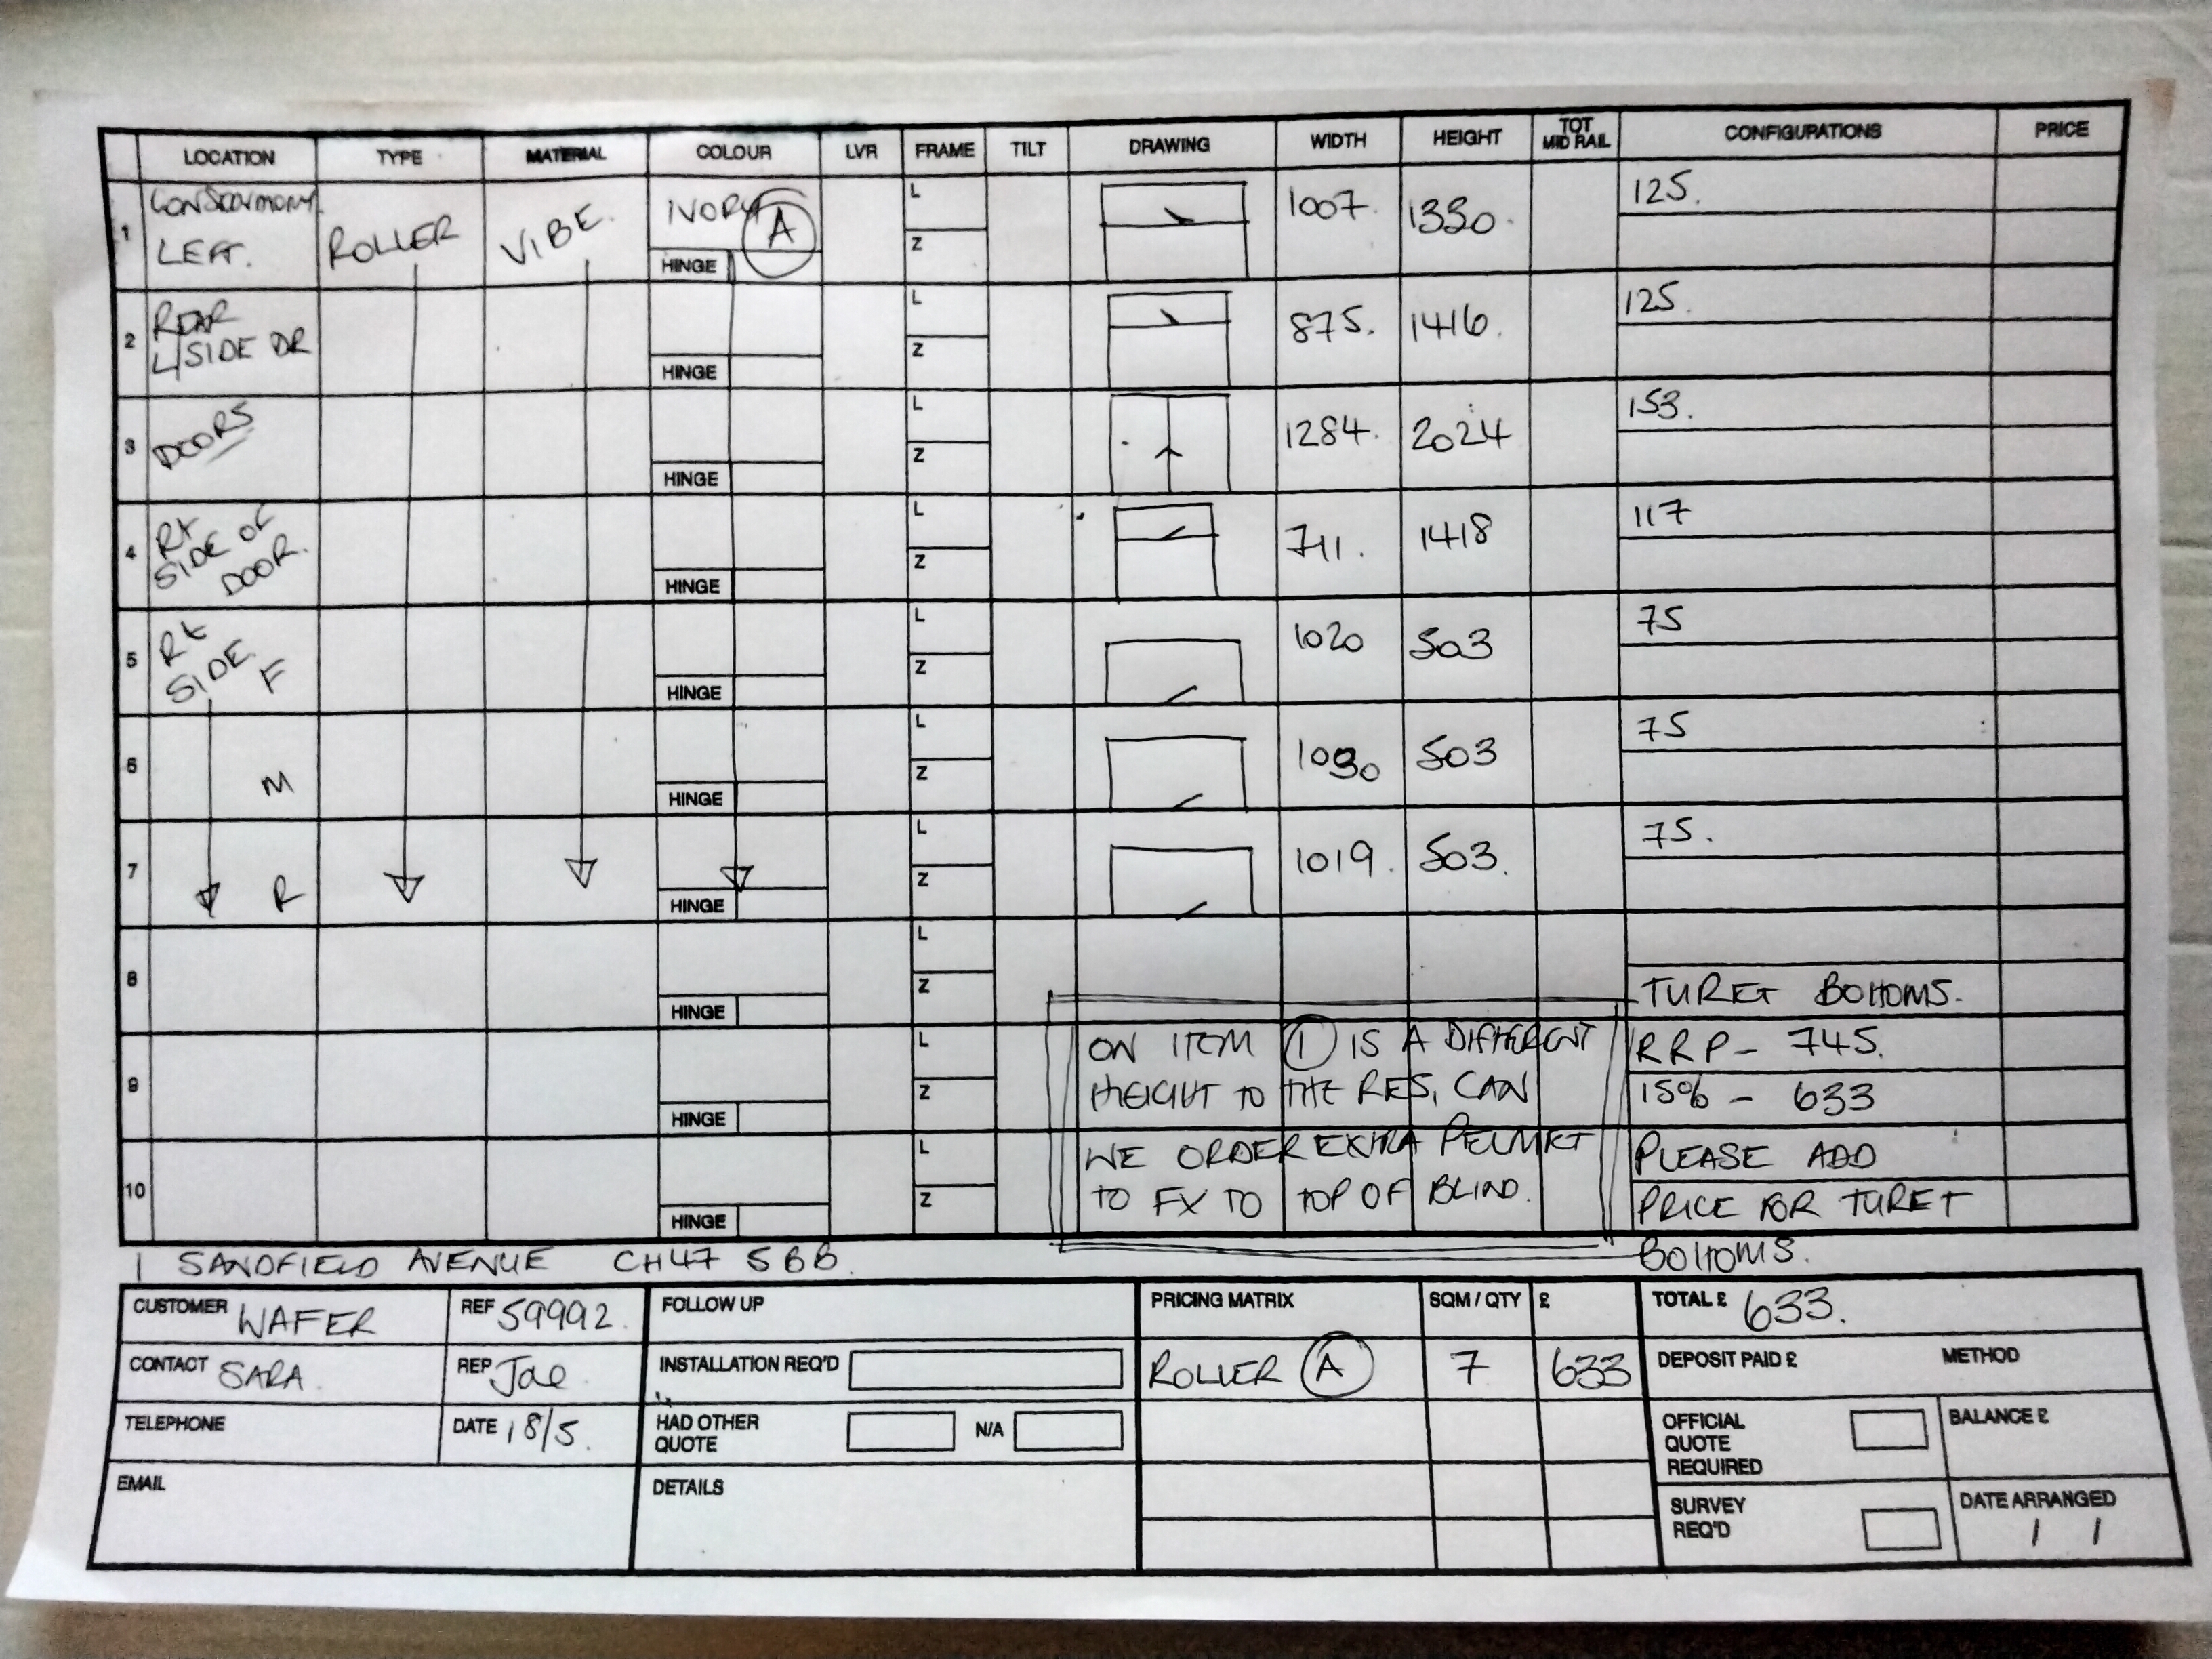 LOCATION TYPE MATERIAL COLOUR LVR FRAME TILT DRAWING WIDTH HEIGHT TOT MID RAIL CONFIGURATIONS PRICE
1 LEFT. ROLLER VIBE. IVORY A HINGE L Z 1007. 1330. 125.
2 REAR L/SIDE DR HINGE L Z 875. 1416. 125.
3 DOORS HINGE L Z 1284. 2024 153.
4 Rt SIDE OF DOOR. HINGE L Z 711. 1418 117
5 Rt SIDE. F HINGE L Z 1020 503 75
6 M HINGE L Z 503 75
7 R HINGE L Z 1019. 503. 75.
8 HINGE L Z
TURET BOTTOMS.
9 HINGE L Z
ON ITEM 1 IS A DIFFERENT
HEIGHT TO THE RES, CAN
RRP - 745.
15% - 633
10 HINGE L Z
WE ORDER EXTRA PELMET
TO FX TO TOP OF BLIND.
PLEASE ADD
PRICE FOR TURET
BOTTOMS.
1 SANDFIELD AVENUE CH47 5BB.
CUSTOMER WAFER
REF 59992.
CONTACT SARA
REP Jae
TELEPHONE
DATE 18/5.
EMAIL
FOLLOW UP
INSTALLATION REQ'D
HAD OTHER
QUOTE
N/A
DETAILS
PRICING MATRIX SQM / QTY £
ROLLER A 7 633
TOTAL £ 633.
DEPOSIT PAID £ METHOD
OFFICIAL
QUOTE
REQUIRED
BALANCE £
SURVEY
REQ'D
DATE ARRANGED
/ /